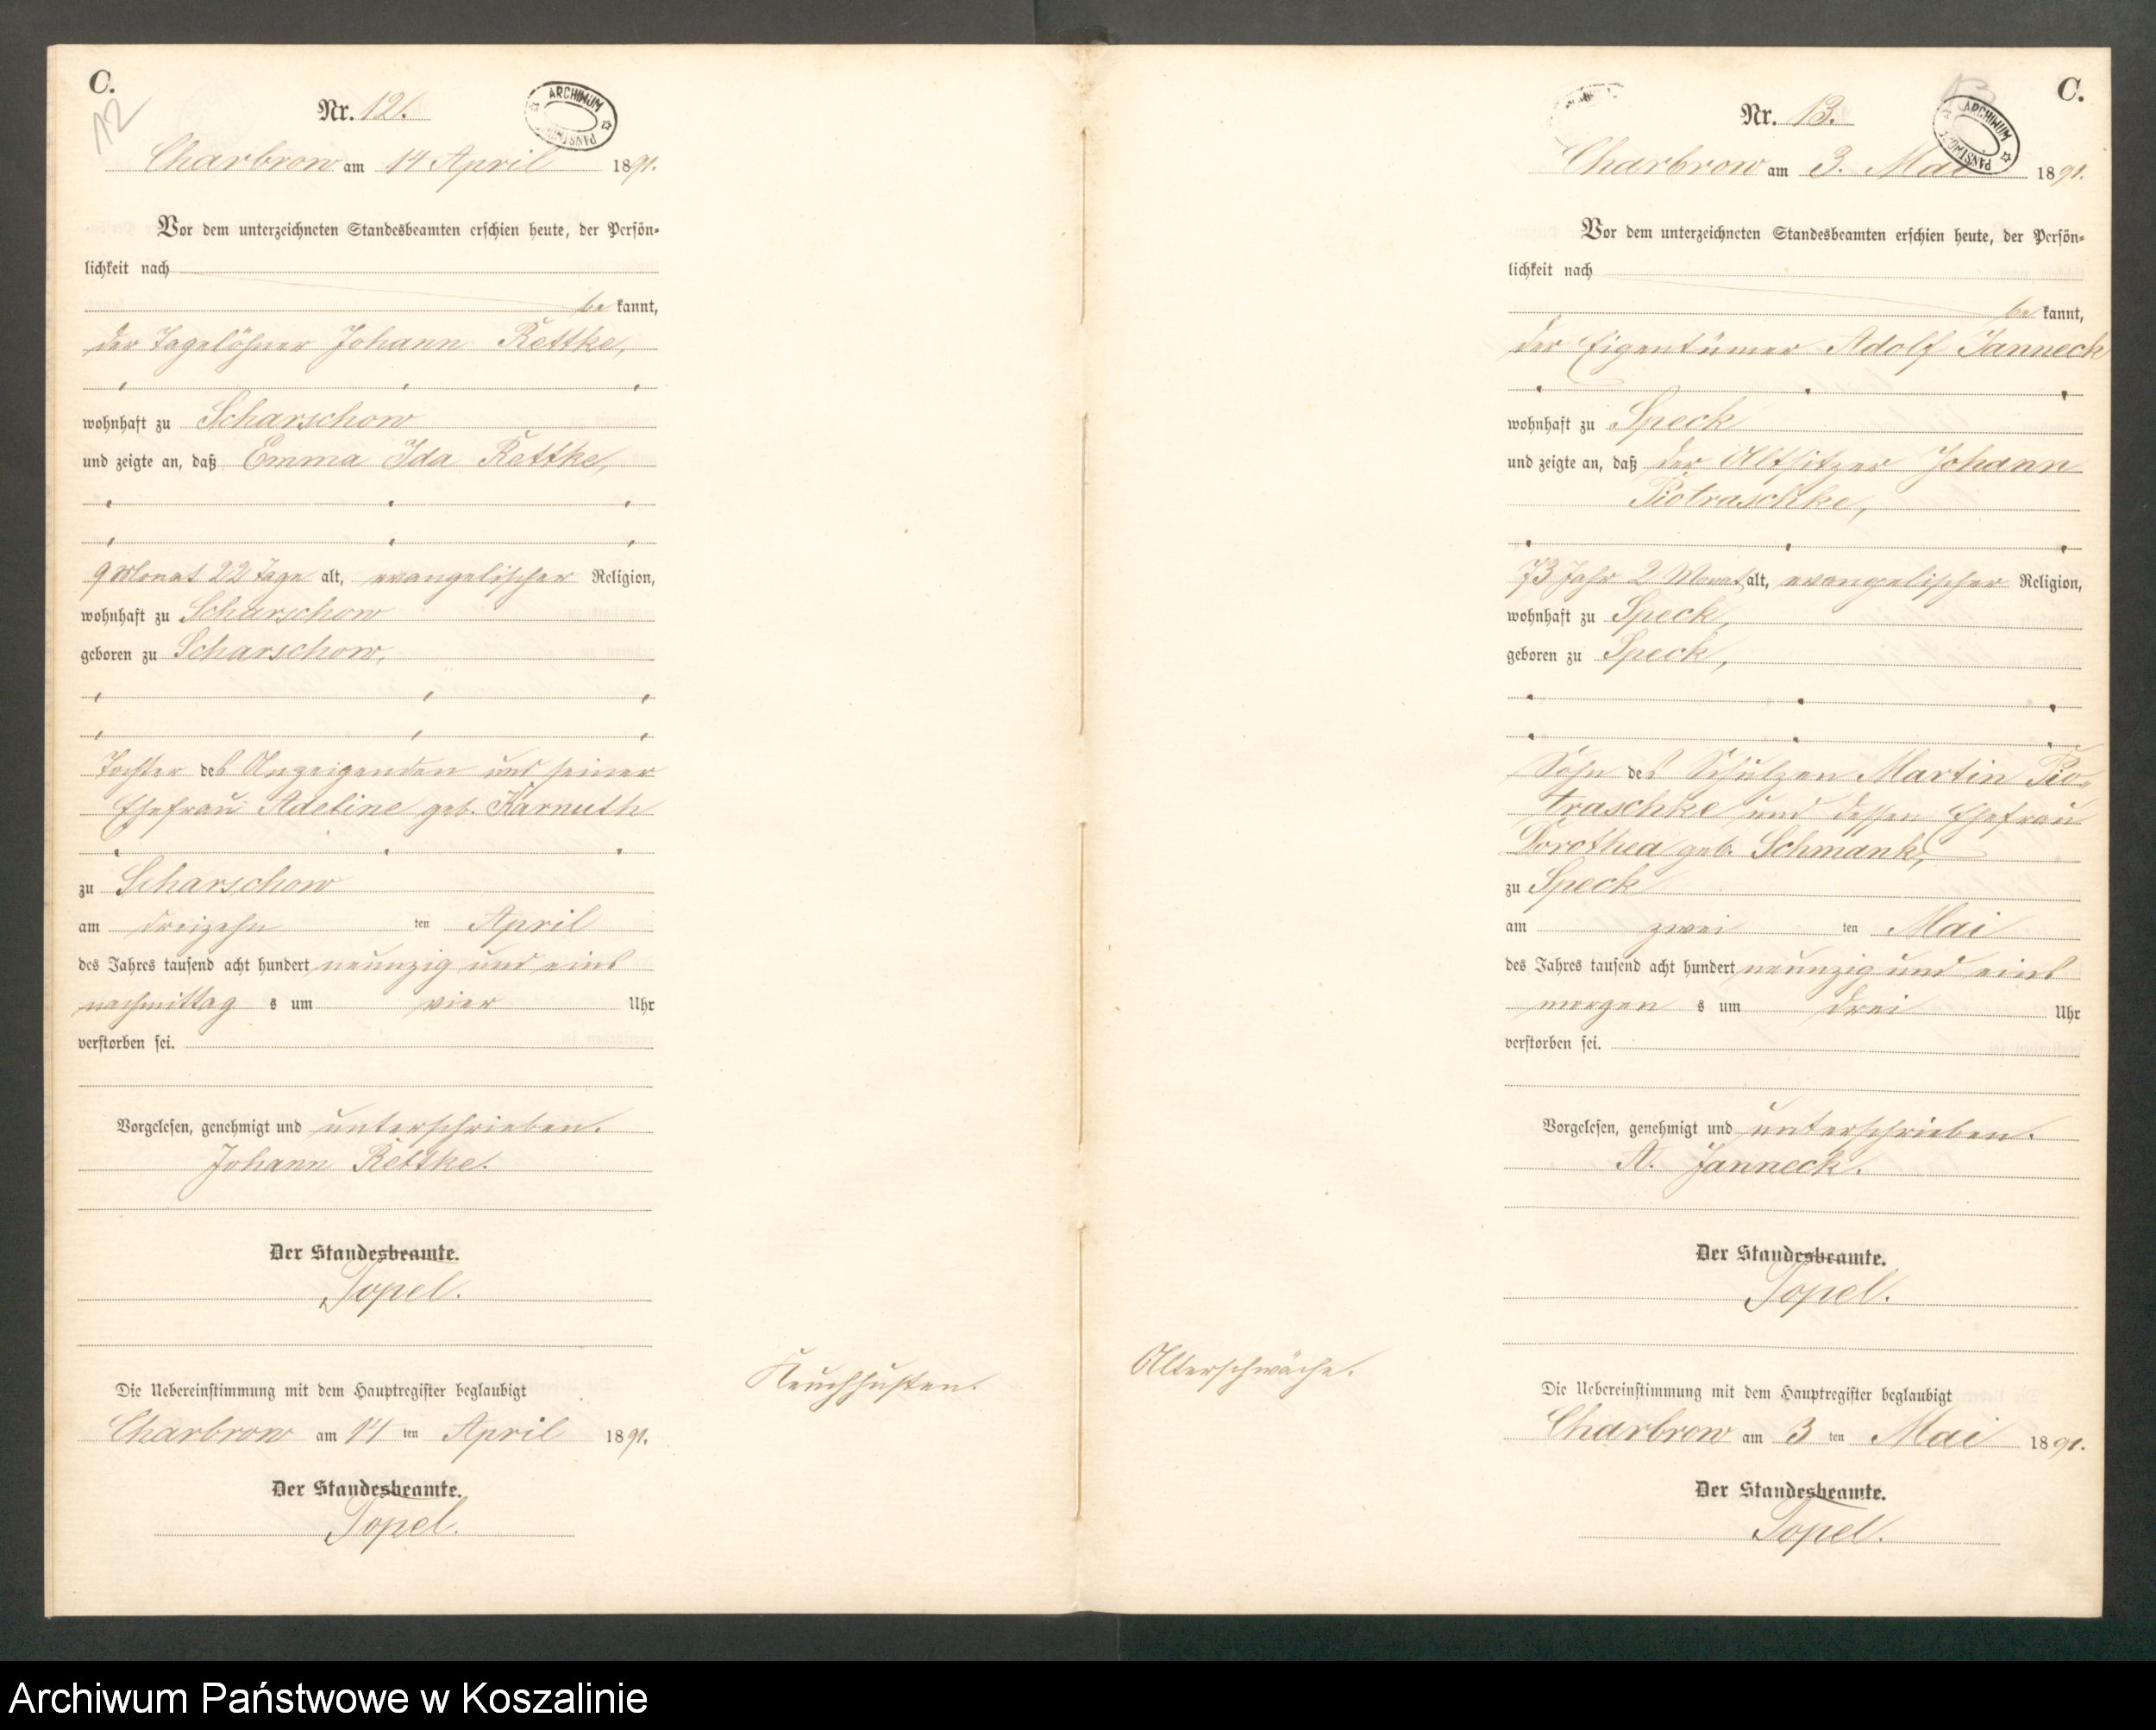 C.
12
Nr. 12.
ARCHIWUM PAŃSTWOWE
Charbrow am 14 April 1891.
Vor dem unterzeichneten Standesbeamten erschien heute, der Persön-
lichkeit nach
be kannt,
der Tagelöhner Johann Rettke,
wohnhaft zu Scharschow
und zeigte an, daß Emma Ida Rettke,
9 Monat 22 Tage alt, evangelischer Religion,
wohnhaft zu Scharschow
geboren zu Scharschow,
Tochter des Anzeigenden und seiner
Ehefrau Adeline geb. Karnuth
zu Scharschow
am dreizehn ten April
des Jahres tausend acht hundert neunzig und eins
nachmittag s um vier Uhr
verstorben sei.
Vorgelesen, genehmigt und unterschrieben.
Johann Rettke.
Der Standesbeamte.
Topel.
Die Uebereinstimmung mit dem Hauptregister beglaubigt
Charbrow am 14 ten April 1891.
Der Standesbeamte.
Topel.
Keuchhusten.
C.
13
Nr. 13.
ARCHIWUM PAŃSTWOWE
Charbrow am 3. Mai 1891.
Vor dem unterzeichneten Standesbeamten erschien heute, der Persön-
lichkeit nach
be kannt,
der Eigentümer Adolf Janneck
wohnhaft zu Speck
und zeigte an, daß der Altsitzer Johann
Piotraschke,
73 Jahr 2 Monat alt, evangelischer Religion,
wohnhaft zu Speck,
geboren zu Speck,
Sohn des Schulzen Martin Pio-
traschke und dessen Ehefrau
Dorothea geb. Schmank,
zu Speck
am zwei ten Mai
des Jahres tausend acht hundert neunzig und eins
morgen s um drei Uhr
verstorben sei.
Vorgelesen, genehmigt und unterschrieben.
A. Janneck.
Der Standesbeamte.
Topel.
Alterschwäche.
Die Uebereinstimmung mit dem Hauptregister beglaubigt
Charbrow am 3 ten Mai 1891.
Der Standesbeamte.
Topel.
Archiwum Państwowe w Koszalinie